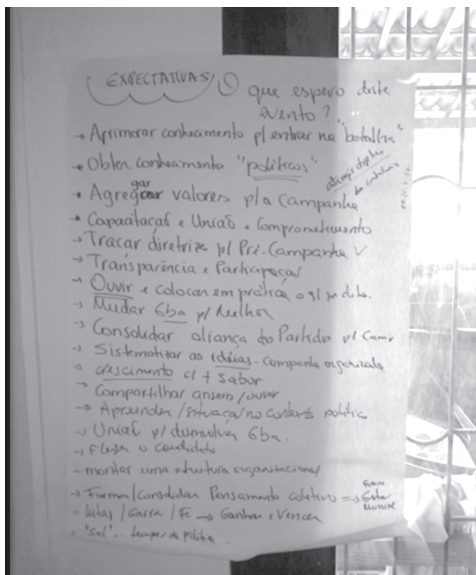 EXPECTATIVAS / O que espero deste
evento?
→ Aprimorar conhecimento p/ entrar na "batalha"
→ Obter conhecimento "políticos"
→ Agregar valores p/a Campanha
→ Capacitação e União e Comprometimento
→ Traçar diretrize p/ Pré-Campanha
→ Transparência e Participaçaõ
→ Ouvir e colocar em prática o
→ Mudar Gba p/ Melhor
→ Consolidar aliança do Partido p/
→ Sistematizar as idéias - campanha organizada
→ crescimento c/ + sabor
→ Compartilhar anseio / ouvir
→ Aprender / situaçaõ no contexto politico
→ União p/ desenvolver Gba.
→ Eleger o candidato
- montar uma estrutura organizacional
→ Formar / Consolidar Pensamento coletivo ⇒
→ lutas / Garra / Fé → Ganhar e Vencer
→ "Sol" ... tempo de politica...